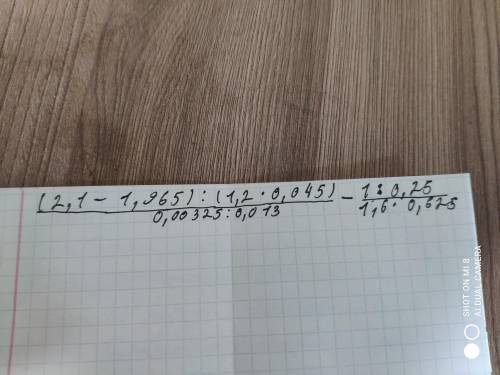 (2,1 - 1,965) : (1,2 · 0,045) - 1 : 0,25
0,00325 : 0,013 1,6 · 0,625
SHOT ON MI 8
AI DUAL CAMERA